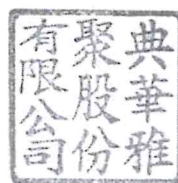 典華雅
聚股份
有限公司